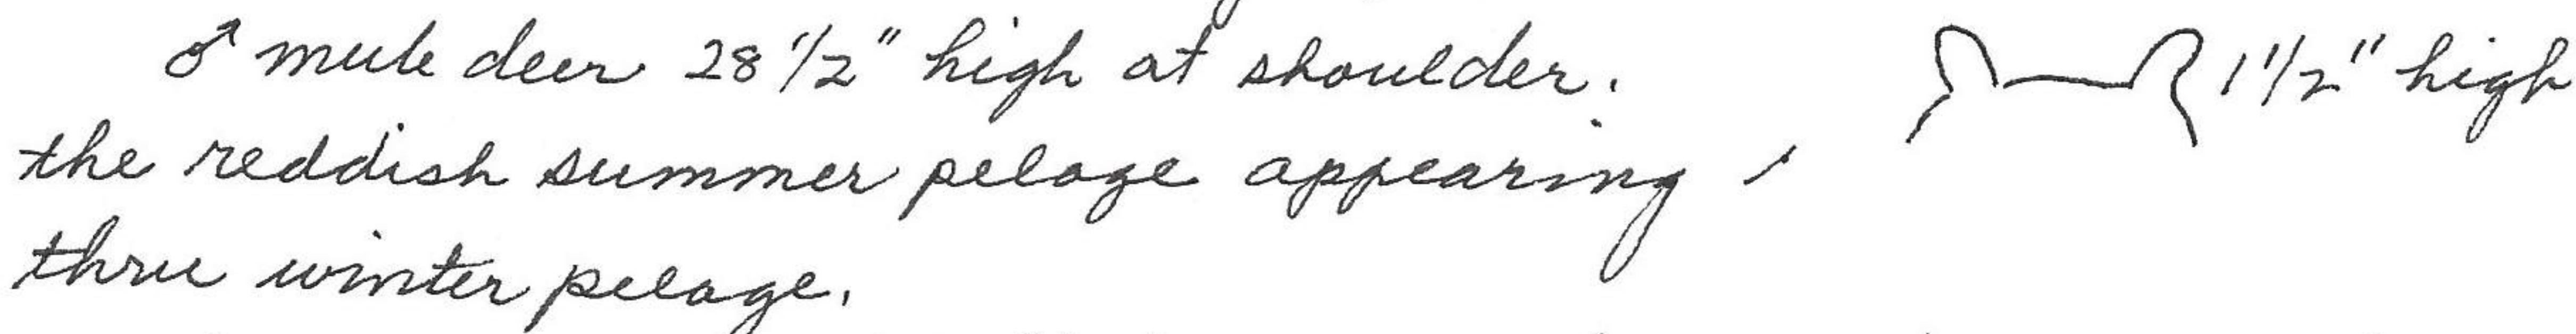 ♂ mule deer 28 1/2" high at shoulder. 1 1/2" high
the reddish summer pelage appearing
thru winter pelage.